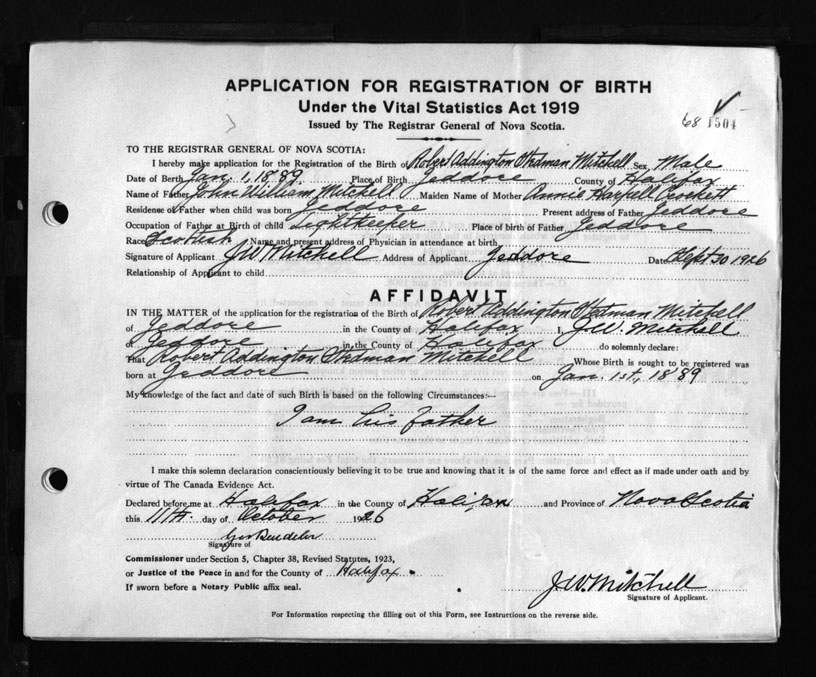 APPLICATION FOR REGISTRATION OF BIRTH
Under the Vital Statistics Act 1919
Issued by The Registrar General of Nova Scotia.
68 1504
TO THE REGISTRAR GENERAL OF NOVA SCOTIA:
I hereby make application for the Registration of the Birth of Robert Addington Stedman Mitchell Sex Male
Date of Birth Jan. 1, 1889 Place of Birth Jeddore County of Halifax
Name of Father John William Mitchell Maiden Name of Mother Annie Crockett
Residence of Father when child was born Jeddore Present address of Father Jeddore
Occupation of Father at Birth of child Lightkeeper Place of birth of Father Jeddore
Race Scottish Name and present address of Physician in attendance at birth
Signature of Applicant JW Mitchell Address of Applicant Jeddore Date Sept 30 1926
Relationship of Applicant to child
AFFIDAVIT
IN THE MATTER of the application for the registration of the Birth of Robert Addington Stedman Mitchell
of Jeddore in the County of Halifax I, J.W. Mitchell
of Jeddore in the County of Halifax do solemnly declare:
That Robert Addington Stedman Mitchell Whose Birth is sought to be registered was
born at Jeddore on Jan. 1st, 1889
My knowledge of the fact and date of such Birth is based on the following Circumstances:—
I am his father
I make this solemn declaration conscientiously believing it to be true and knowing that it is of the same force and effect as if made under oath and by
virtue of The Canada Evidence Act.
Declared before me at Halifax in the County of Halifax and Province of Nova Scotia
this 11th. day of October 1926
Signature of
Commissioner under Section 5, Chapter 38, Revised Statutes, 1923,
or Justice of the Peace in and for the County of Halifax.
If sworn before a Notary Public affix seal.
J.W. Mitchell
Signature of Applicant.
For Information respecting the filling out of this Form, see Instructions on the reverse side.